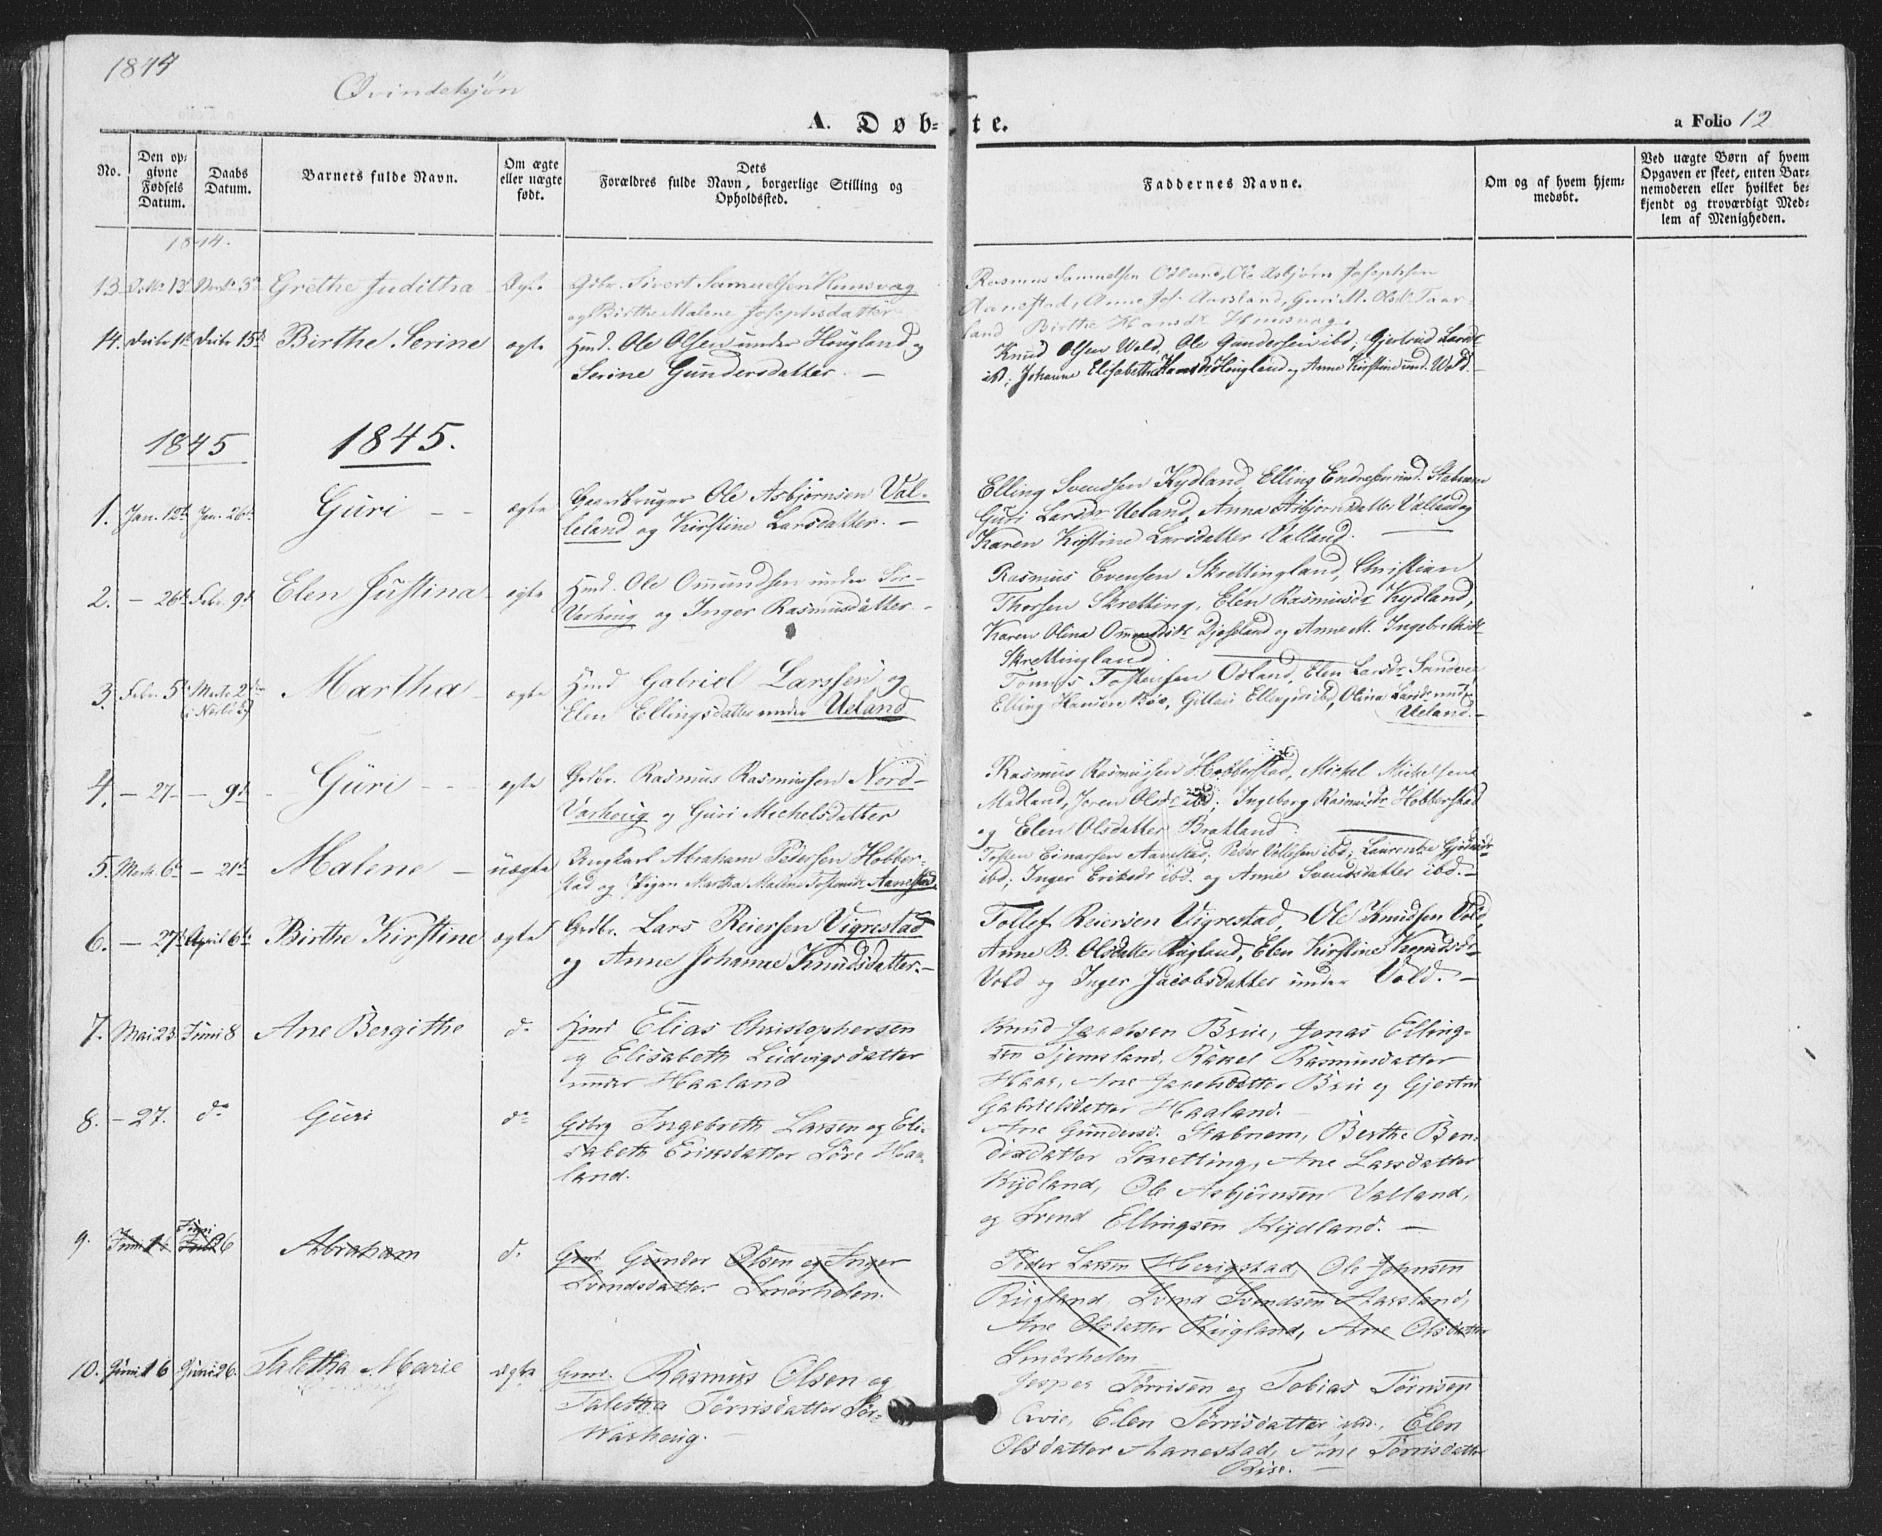 1844
Qvindekjøn
A. Døbte.
a Folio 12
No.
Den op-
givne
Fødsels
Datum.
Daabs
Datum.
Barnets fulde Navn.
Om ægte
eller uægte
født.
Dets
Forældres fulde Navn, borgerlige Stilling og
Opholdssted.
Faddernes Navne.
Om og af hvem hjem-
medøbt.
Ved uægte Børn af hvem
Opgaven er skeet, enten Bar-
nemoderen eller hvilket be-
kjendt og troværdigt Med-
lem af Menigheden.
1844.
13. Grethe Juditha Ægte Gdbr. Sivert Samuelsen Hunsvag
og Birthe Malene Josephsdatter
Rasmus Samuelsen Odland, Ole Asbjørn Josephsen
Aanestad, Anne Jos. Aarsland, Guri M. Olsdr Taar-
land Birthe Hansdr Hunsvag.
14. Decbr 1te Decbr 15de Birthe Serine ægte Hmd. Ole Olsen under Høugland og
Serine Gundersdatter. —
Knud Olsen Wold, Ole Gundersen ibd, Gjertrud Larsdr
ibd; Johanne Elisabeth Hansdr Høugland og Anne Kirstine und. Wold.
1845 1845.
1. Jan. 12te Jan. 26de Guri — ægte Gaardbruger Ole Asbjørnsen Val-
leland og Kirstine Larsdatter. —
Elling Svendsen Kydland, Elling Endresen und. Stabnem
Guri Larsdr Ueland, Anna Asbjørnsdatter Valland og
Karen Kirstine Larsdatter Valland.
2. — 26de Febr. 9de Elen Justina ægte Hmd. Ole Ommundsen under Sør-
Varhoug og Inger Rasmusdatter —
Rasmus Evensen Skrettingland, Christian
Thorsen Skretting, Elen Rasmusdr Kydland,
Karen Olina Ommundsdr Djøseland og Anne M. Ingebrethsdr
Skrettingland.
3. Febr. 5te Marts 2den Martha ægte Hmd Gabriel Larssen og
Elen Ellingsdatter under Ueland
Tønnes Tostensen Odland, Elen Larsdr Sandve
Elling Hansen Bøe, ibd, Olina Larsdr under
Ueland. —
4. — 27 — — 9de Guri — ægte Grdbr. Rasmus Rasmussen Nord-
Varhoug og Guri Michelsdatter
Rasmus Rasmussen Hobberstad, Michel Michelsen
Madland, Joren Olsdr ibd; Ingeborg Rasmusdr Hobberstad
og Elen Olsdatter Bratland.
5. Marts 6te — 21de Malene — uægte Ungkarl Abraham Pedersen Hobber-
stad og Pigen Martha Malene Tostensdr Aanestad.
Tosten Einarsen Aanestad; Peder Tollefsen ibd; Laurentze
ibd; Inger Eriksdr ibd. og Anne Svendsdatter ibd. —
6. — 27de April 6te Birthe Kirstine ægte Grdbr. Lars Reiersen Vigrestad
og Anne Johanne Knudsdatter. —
Tollef Reiersen Vigrestad, Ole Knudsen Vold,
Anne B. Olsdatter Rugland, Elen Kirstine Knudsdr
Vold og Inger Jacobsdatter under Vold. —
7. Mai 23 Juni 8 Ane Bergithe do Hmd Elias Christophersen
og Elisabeth Ludvigsdatter
under Haaland
Knud Jacobsen Brue, Jonas Elling-
sen Tjemsland, Rakel Rasmusdatter
Haar, Ane Jacobsdatter Brue og Gjertrud
Gabrielsdatter Haaland. —
8. — 27. do Guri do Gdbrg Ingebreth Larsen og Eli-
sabeth Eriksdatter Søre Haa-
land.
Ane Gundersd. Stabnem, Berthe Ben-
dixdatter Skretting, Ane Larsdatter
Kydland, Ole Asbjørnsen Valland,
og Svend Ellingsen Kydland. —
9. Juni 1 Juni 26 Abraham do Gmd. Gunder Olsen og Inger
Svendsdatter Smørholen.
Peder Larsen Herigstad, Ole Johnsen
Rugland, Svend Svendsen Aarsland,
Ane Olsdatter Rugland, Ane Olsdatter
Smørholen
10. Juni 16 Juni 26. Taletha Marie ægte Gmd. Rasmus Olsen og
Taletha Tørrisdatter Sør-
Warhoug. —
Jesper Tørrisen og Tobias Tørrisen
Qvie, Elen Tørrisdatter ibd., Elen
Olsdatter Aanestad, Ane Tørrisdatter
Rise. —